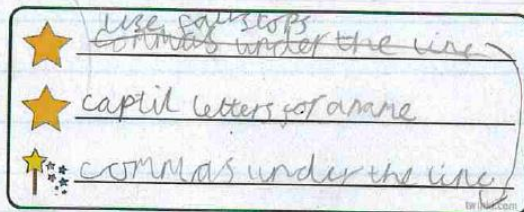 use full stops
commas under the line
captil letters for a name
commas under the line
twinkl.com